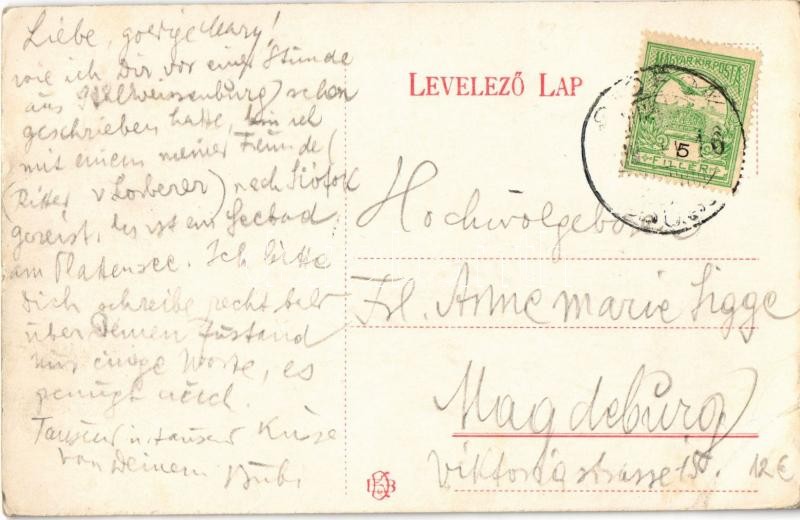 Liebe, goldige Mary!
wie ich Dir vor einer Stunde
aus Stuhlweissenburg) schon
geschrieben hatte, bin ich
mit einem meiner Freunde
(Ritter v Lorberer) nach Siófok
gereist, das ist ein Seebad
am Plattensee. Ich bitte
Dich schreibe recht bald
über Deinen Zustand
nur einige Worte, es
genügt
Tausend u. tausend Küsse
von Deinem Bubi
LEVELEZŐ LAP
MAGYAR KIR. POSTA
5
FILLÉR
Hochwolgeboren
Frl. Annemarie Sigge
Magdeburg
Viktoriastrasse 15